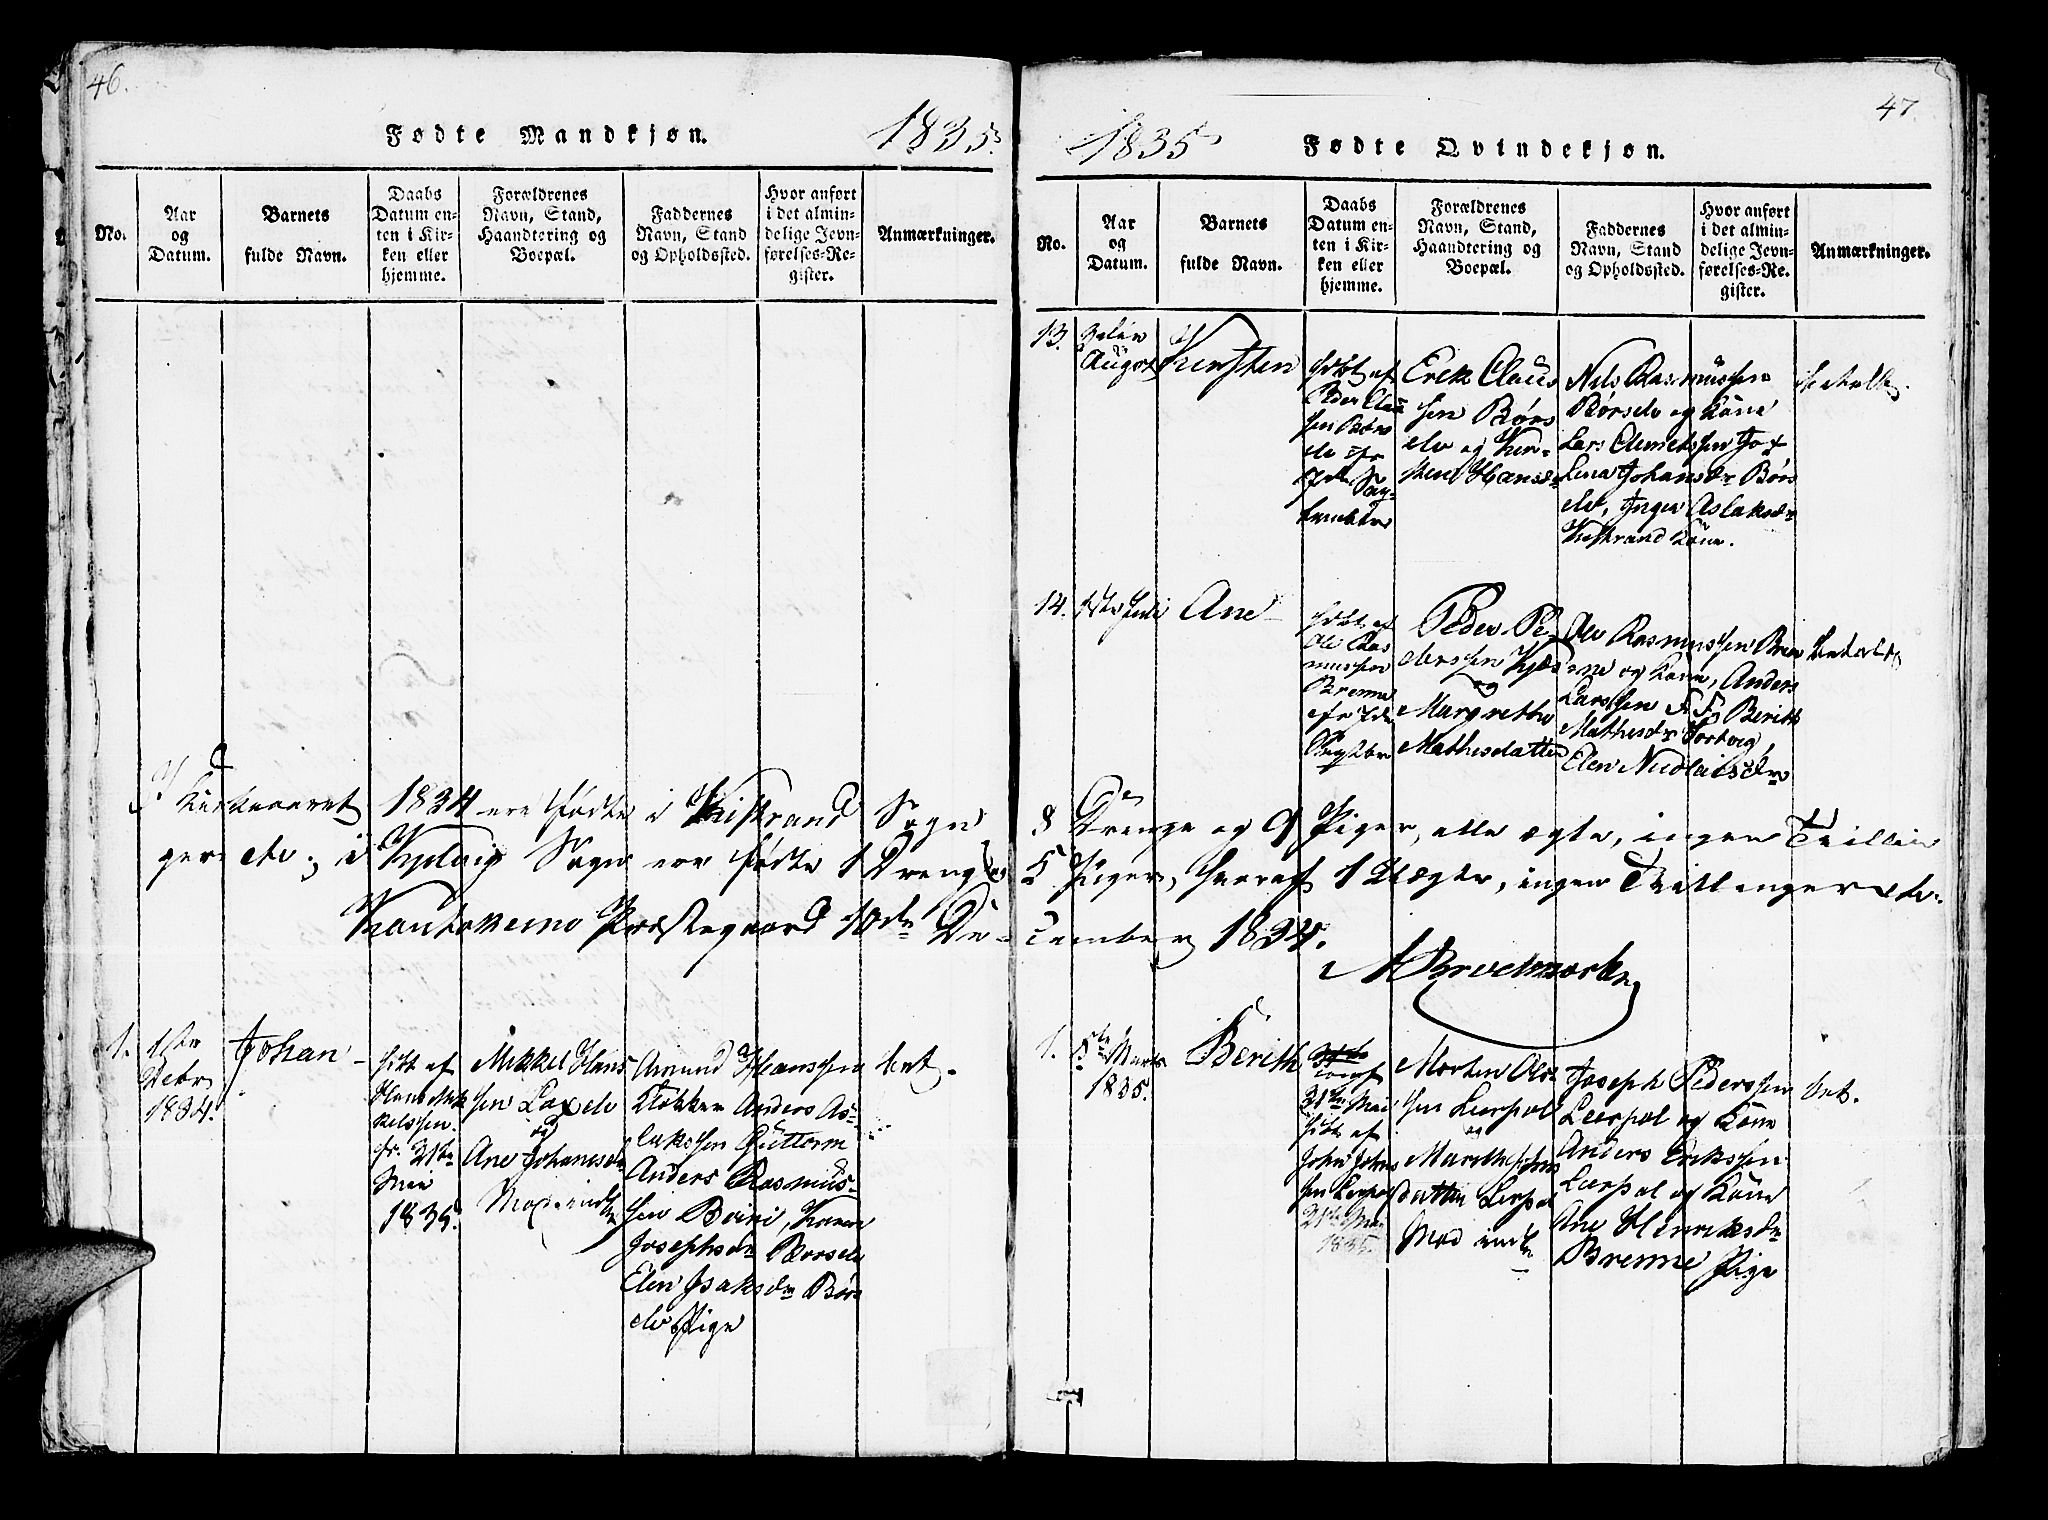 46.
Fødte Mandkjøn.
1835.
No.
Aar
og
Datum.
Barnets
fulde Navn.
Daabs
Datum en-
ten i Kir-
ken eller
hjemme.
Forældrenes
Navn, Stand,
Haandtering og
Boepæl.
Faddernes
Navn, Stand
og Opholdssted.
Hvor anført
i det almin-
delige Jevn-
førelses-Re-
gister.
Anmærkninger.
1.
1ste
Debr
1834.
Johan
hibt af
Hans Mik
kelssen.
fr. 21de
Mai
1835.
Mikkel Hans
sen Laxelv
og
Ane Johannesdr
Amund Hanssen
Klokker Anders As-
lakssen Guttorm
Anders Rasmus-
sen Boini, Karen
Josephsdr Børselv
Elen Isaksdr Børs
elv Pige
bet.
47.
1835
Fødte Qvindekjøn.
No.
Aar
og
Datum.
Barnets
fulde Navn.
Daabs
Datum en-
ten i Kir-
ken eller
hjemme.
Forældrenes
Navn, Stand,
Haandtering og
Boepæl.
Faddernes
Navn, Stand
og Opholdssted.
Hvor anført
i det almin-
delige Jevn-
førelses-Re-
gister.
Anmærkninger.
13.
August
Kirsten
hdbt af
Peder Clau
sen Børs
elv
Sep-
tember
Erik Claus
sen Børs
elv og Kir-
sten Hansdr
Nils Rasmussen
Børselv og Kone
Lars Clemetssen
Lena Johansdr Børs
elv, Inger Aslaksdr
Kistrand Kone.
betalt.
14.
1ste Juli
Ane
hdbt af
Ole Ras
mussen
Brenne
Septbr
Peder Pe-
derssen
og
Margrethe
Mathisdatter
Ole Rasmussen Bren
ne og Kone, Anders
Larssen Berith
Mathisdr
Elen Nicolaisdr
betalt
I Kirkeaaret 1834 ere fødte i Kistrand Sogn 8 Drenge og 9 Piger, alle ægte, ingen Tvillin
ger etc; i Kjelvig Sogn ere fødte 1 Dreng og 5 Piger, hvoraf 1 Uægte, ingen Tvillinger etc.
Kautokeino Præstegaard 10de De- cember 1834.
1.
Marts
1835.
Berith
21de Mai
hibt af
John Johns
sen Leerpol
21de Mai
1835.
Morten Ols
sen Leerpol
og
Marith Johns
datter Leerpol
Joseph Pederssen
Leerpol og Kone
Anders Erikssen
Leerpol og Kone
Ane Henriksdr
Brenne Pige
bet.